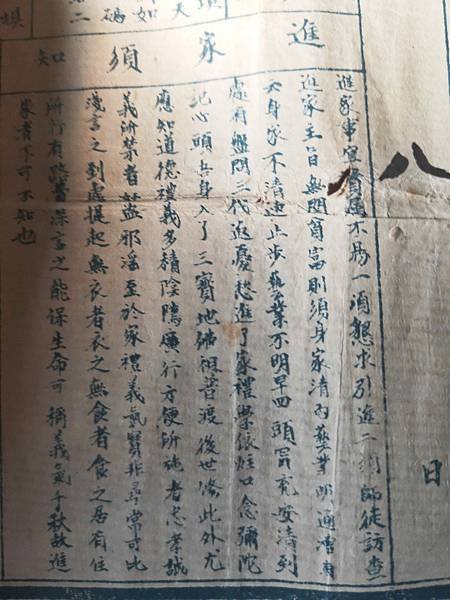 進家須知
進家事宜實屬不易一須懇求引進二須師徒訪查
進家主旨無問貧富則須身家清而藝業明通漕車
六身家不清速止步藝業不明早回頭冒充安清到
處有盤問三代返憂愁進了家禮榮依炷口念彌陀
記心頭吾身入了三寶地彌祖普渡後世修此外尤
應知道德禮義多積陰騭廣行方便所施者忠孝誠
義所禁者盜邪淫至於家禮義氣實非尋常可比
淺言之到處提起無衣者衣之無食者食之居有住
所行有路蓄深言之能保生命可稱義氣千秋故進
家者不可不知也
八
日